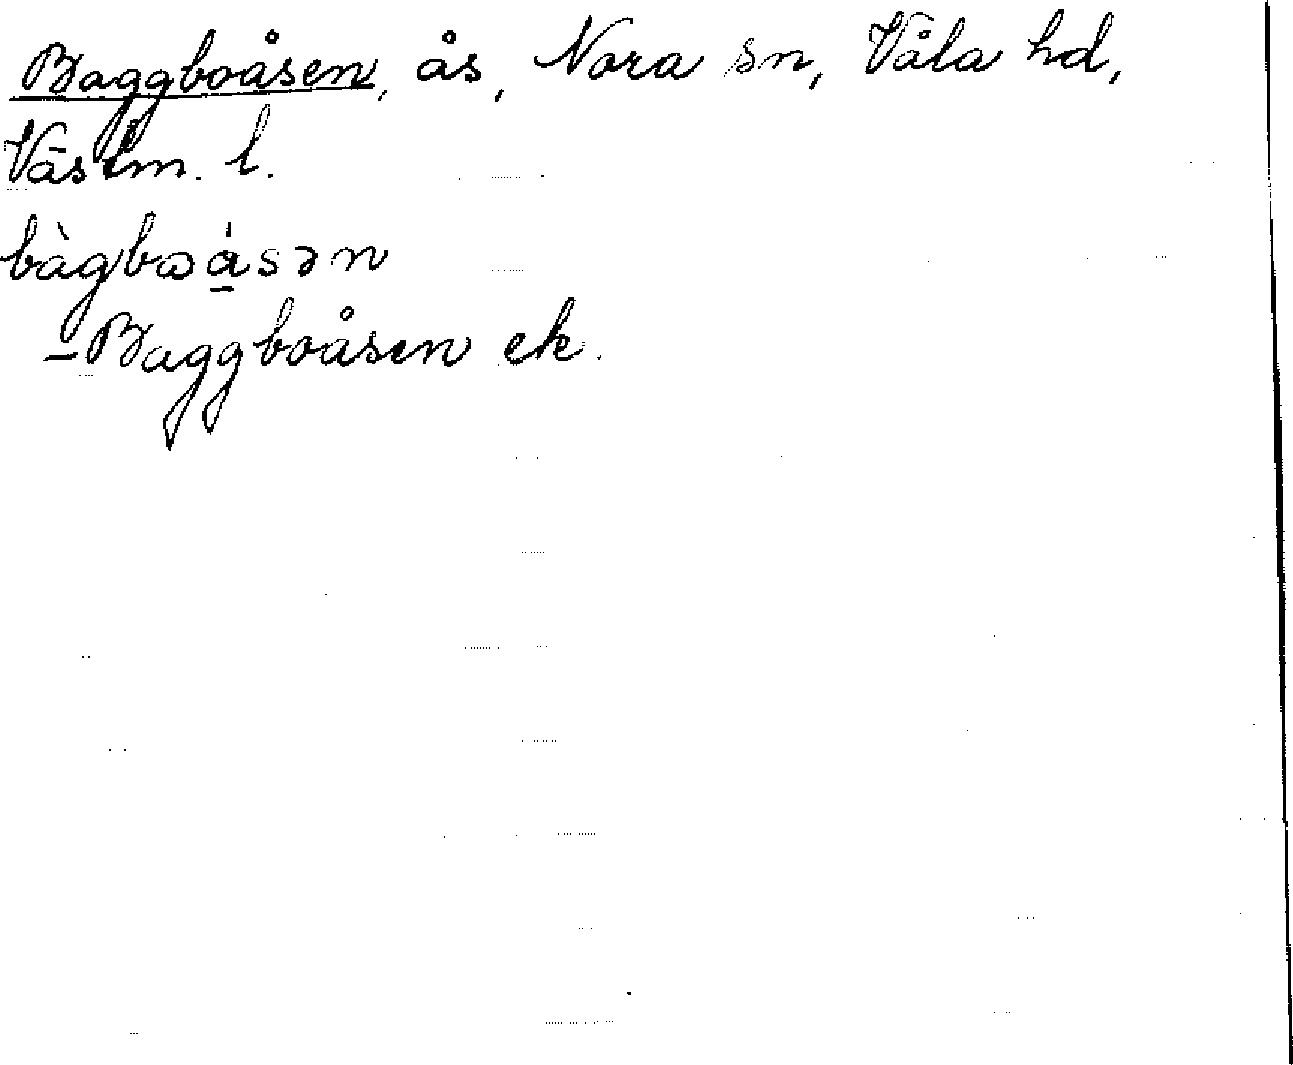 Baggboåsen, ås, Nora sn, Våla hd,
Västm. l.
bàgbωå̲sən
– Baggboåsen ek.